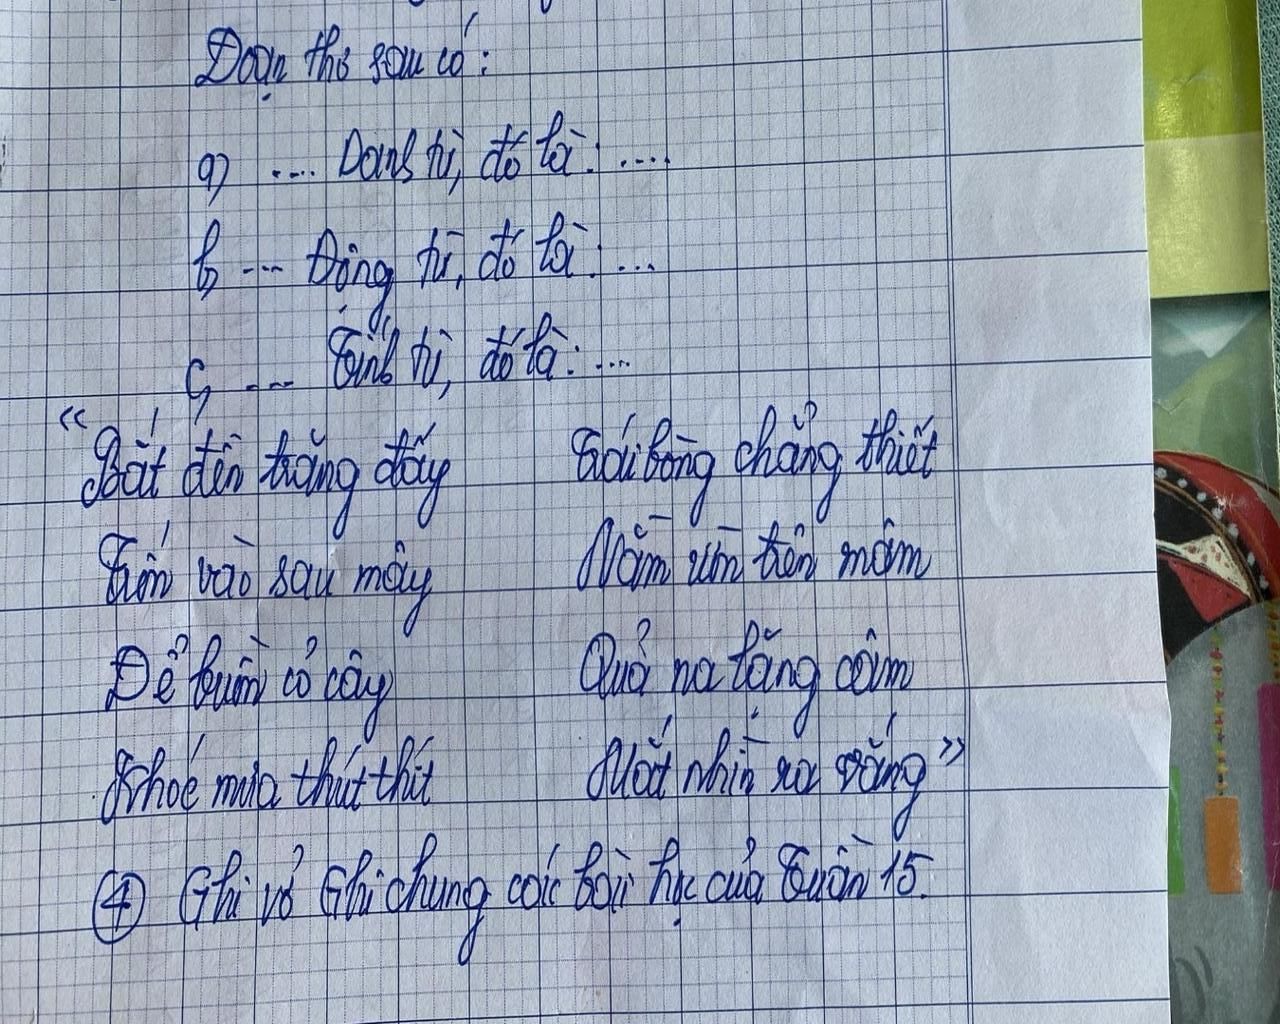 Đoạn thơ sau có:
a) .... Danh từ, đó là: ....
b, ... Động từ, đó là: ...
c, ... Tính từ, đó là: ...
"Bắt đền trăng đấy
Trốn vào sau mây
Để buồn cỏ cây
Khoé mưa thút thít
Trái bòng chẳng thiết
Nằm ườn trên mâm
Quả na lặng câm
Mắt nhìn xa vắng"
④ Ghi vở Ghi chung các bài học của Tuần 15.